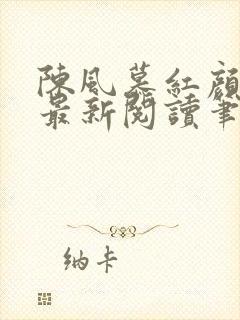 陳風慕紅顏
最新閱讀筆
納卡